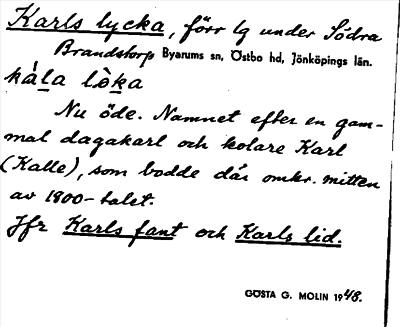 Karls lycka, förr lg under Södra
Brandstorp Byarums sn, Östbo hd, Jönköpings län.
kàla lò̱ka
Nu öde. Namnet efter en gam-
mal dagakarl och kolare Karl
(Kalle), som bodde där omkr. mitten
av 1800-talet.
Jfr Karls fant och Karls lid.
GÖSTA G. MOLIN 1948.